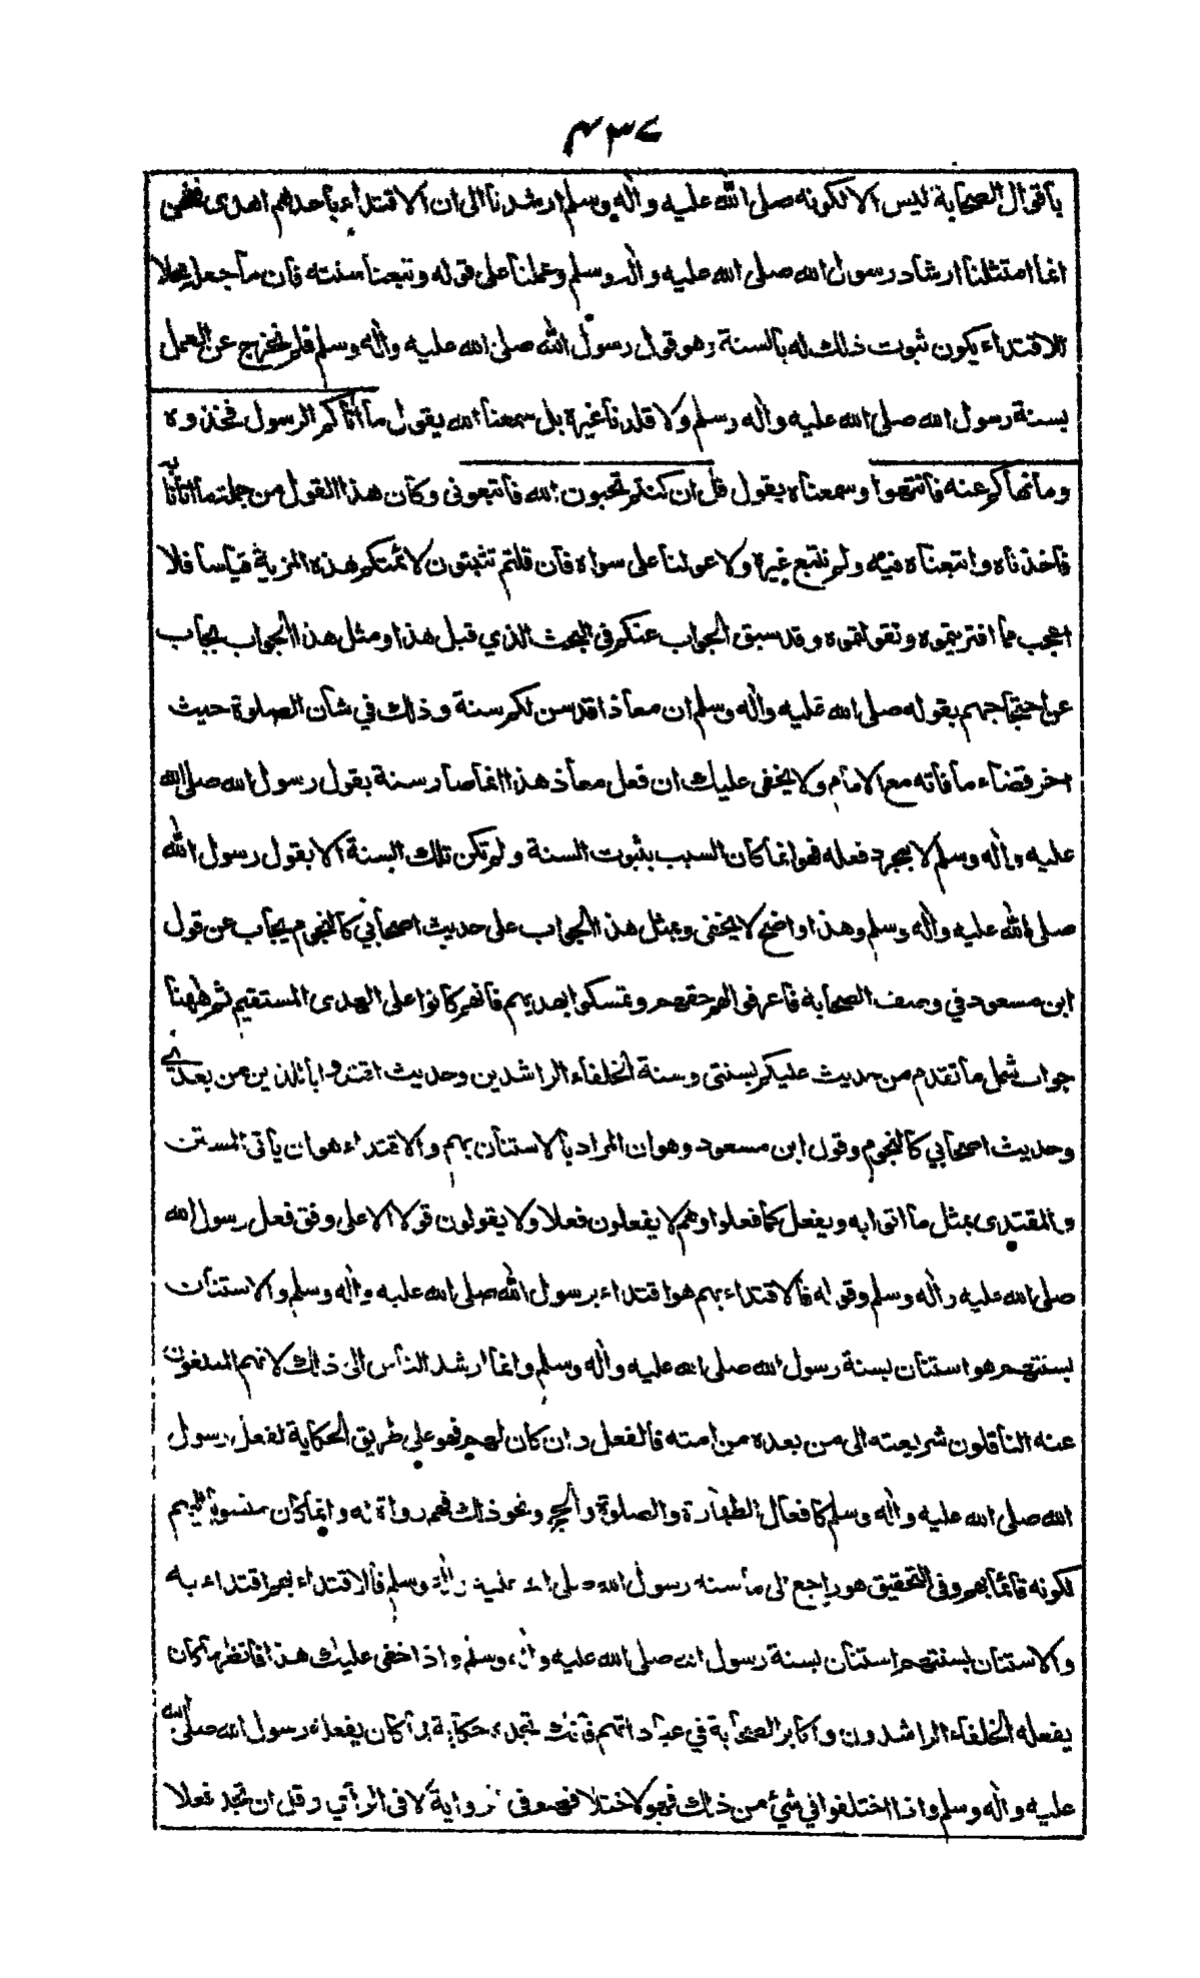 ۴۳۷
بأقوال الصحابة ليس الا لكونه صلى الله عليه وآله وسلم ارشدنا الى ان الاقتداء بأحدهم اهدى فنحن
انما امتثلنا ارشاد رسول الله صلى الله عليه وآله وسلم وعملنا على قوله وتبعنا سنته فان ما جعل محلا
للاقتداء يكون ثبوت ذلك له بالسنة وهو قول رسول الله صلى الله عليه وآله وسلم فلم نخرج عن العمل
بسنة رسول الله صلى الله عليه وآله وسلم ولا قلدنا غيره بل سمعنا الله يقول ما آتاكم الرسول فخذوه
وما نهاكم عنه فانتهوا وسمعناه يقول قل ان كنتم تحبون الله فاتبعونى وكان هذا القول من جملة ما اتانا به
فاخذناه واتبعناه فيه ولم نتبع غيره ولا عولنا على سواه فان قلتم تثبتون لائمتكم هذه المزية قياسا فلا
اعجب مما افتريتموه وتقولتموه وقد سبق الجواب عنكم فى البحث الذي قبل هذا ومثل هذا الجواب يجاب
عن احتجاجهم بقوله صلى الله عليه وآله وسلم ان معاذا قد سن لكم سنة وذلك في شأن الصلوة حيث
اخر قضاء ما فاته مع الامام ولا يخفى عليك ان فعل معاذ هذا انما صار سنة بقول رسول الله صلى الله
عليه وآله وسلم لا بمجرد فعله فهو انما كان السبب بثبوت السنة ولم تكن تلك السنة الا بقول رسول الله
صلى الله عليه وآله وسلم وهذا واضح لا يخفى وبمثل هذا الجواب على حديث اصحابي كالنجوم يجاب عن قول
ابن مسعود في وصف الصحابة فاعرفوا لهم حقهم وتمسكوا بهديهم فانهم كانوا على الهدى المستقيم ثم ههنا
جواب شمل ما تقدم من حديث عليكم بسنتى وسنة الخلفاء الراشدين وحديث اقتدوا بالذين من بعدي
وحديث اصحابي كالنجوم وقول ابن مسعود وهو ان المراد بالاستنان بهم والاقتداء هو ان يأتى المستن
والمقتدى بمثل ما اتوا به ويفعل كما فعلوا وهم لا يفعلون فعلا ولا يقولون قولا الا على وفق فعل رسول الله
صلى الله عليه وآله وسلم وقوله فالاقتداء بهم هو اقتداء برسول الله صلى الله عليه وآله وسلم والاستنان
بسنتهم هو استنان بسنة رسول الله صلى الله عليه وآله وسلم وانما ارشد الناس الى ذلك لانهم المبلغون
عنه الناقلون شريعته الى من بعده من امته فالفعل وان كان لهم فهو على طريق الحكاية لفعل رسول
الله صلى الله عليه وآله وسلم كافعال الطهارة والصلوة والحج ونحو ذلك فهم رواة له وانما كان منسوبا اليهم
لكونه قائما بهم وفى التحقيق هو راجع الى ما سنه رسول الله صلى الله عليه وآله وسلم فالاقتداء بهم اقتداء به
والاستنان بسنتهم استنان بسنة رسول الله صلى الله عليه وآله وسلم واذا خفى عليك هذا فانظر ما كان
يفعله الخلفاء الراشدون واكابر الصحابة في عباداتهم فانك تجده حكاية لما كان يفعله رسول الله صلى الله
عليه وآله وسلم واذا اختلفوا في شيء من ذلك فهو لاختلافهم فى الرواية لا فى الرأي وقل ان تجد فعلا